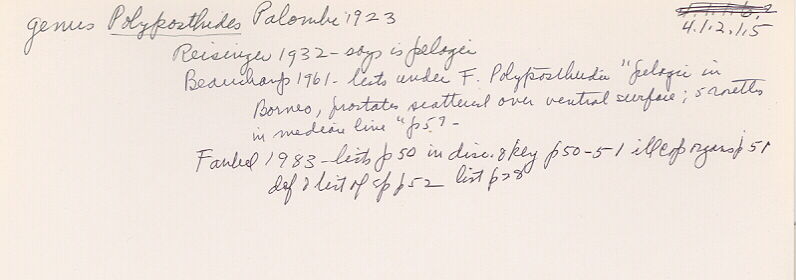 genus Polyposthides Palombi 1923
4.1.2.1.5
Reisinger 1932 - says is pelagic
Beauchamp 1961 - lists under F. Polyposthiidae "pelagic in
Borneo, prostates scattered over ventral surface; 5
in median line" p59 -
Faubel 1983 - lists p50 in disc. & key p50-51 ill cop organs p51
def & list of sp p52 list p28